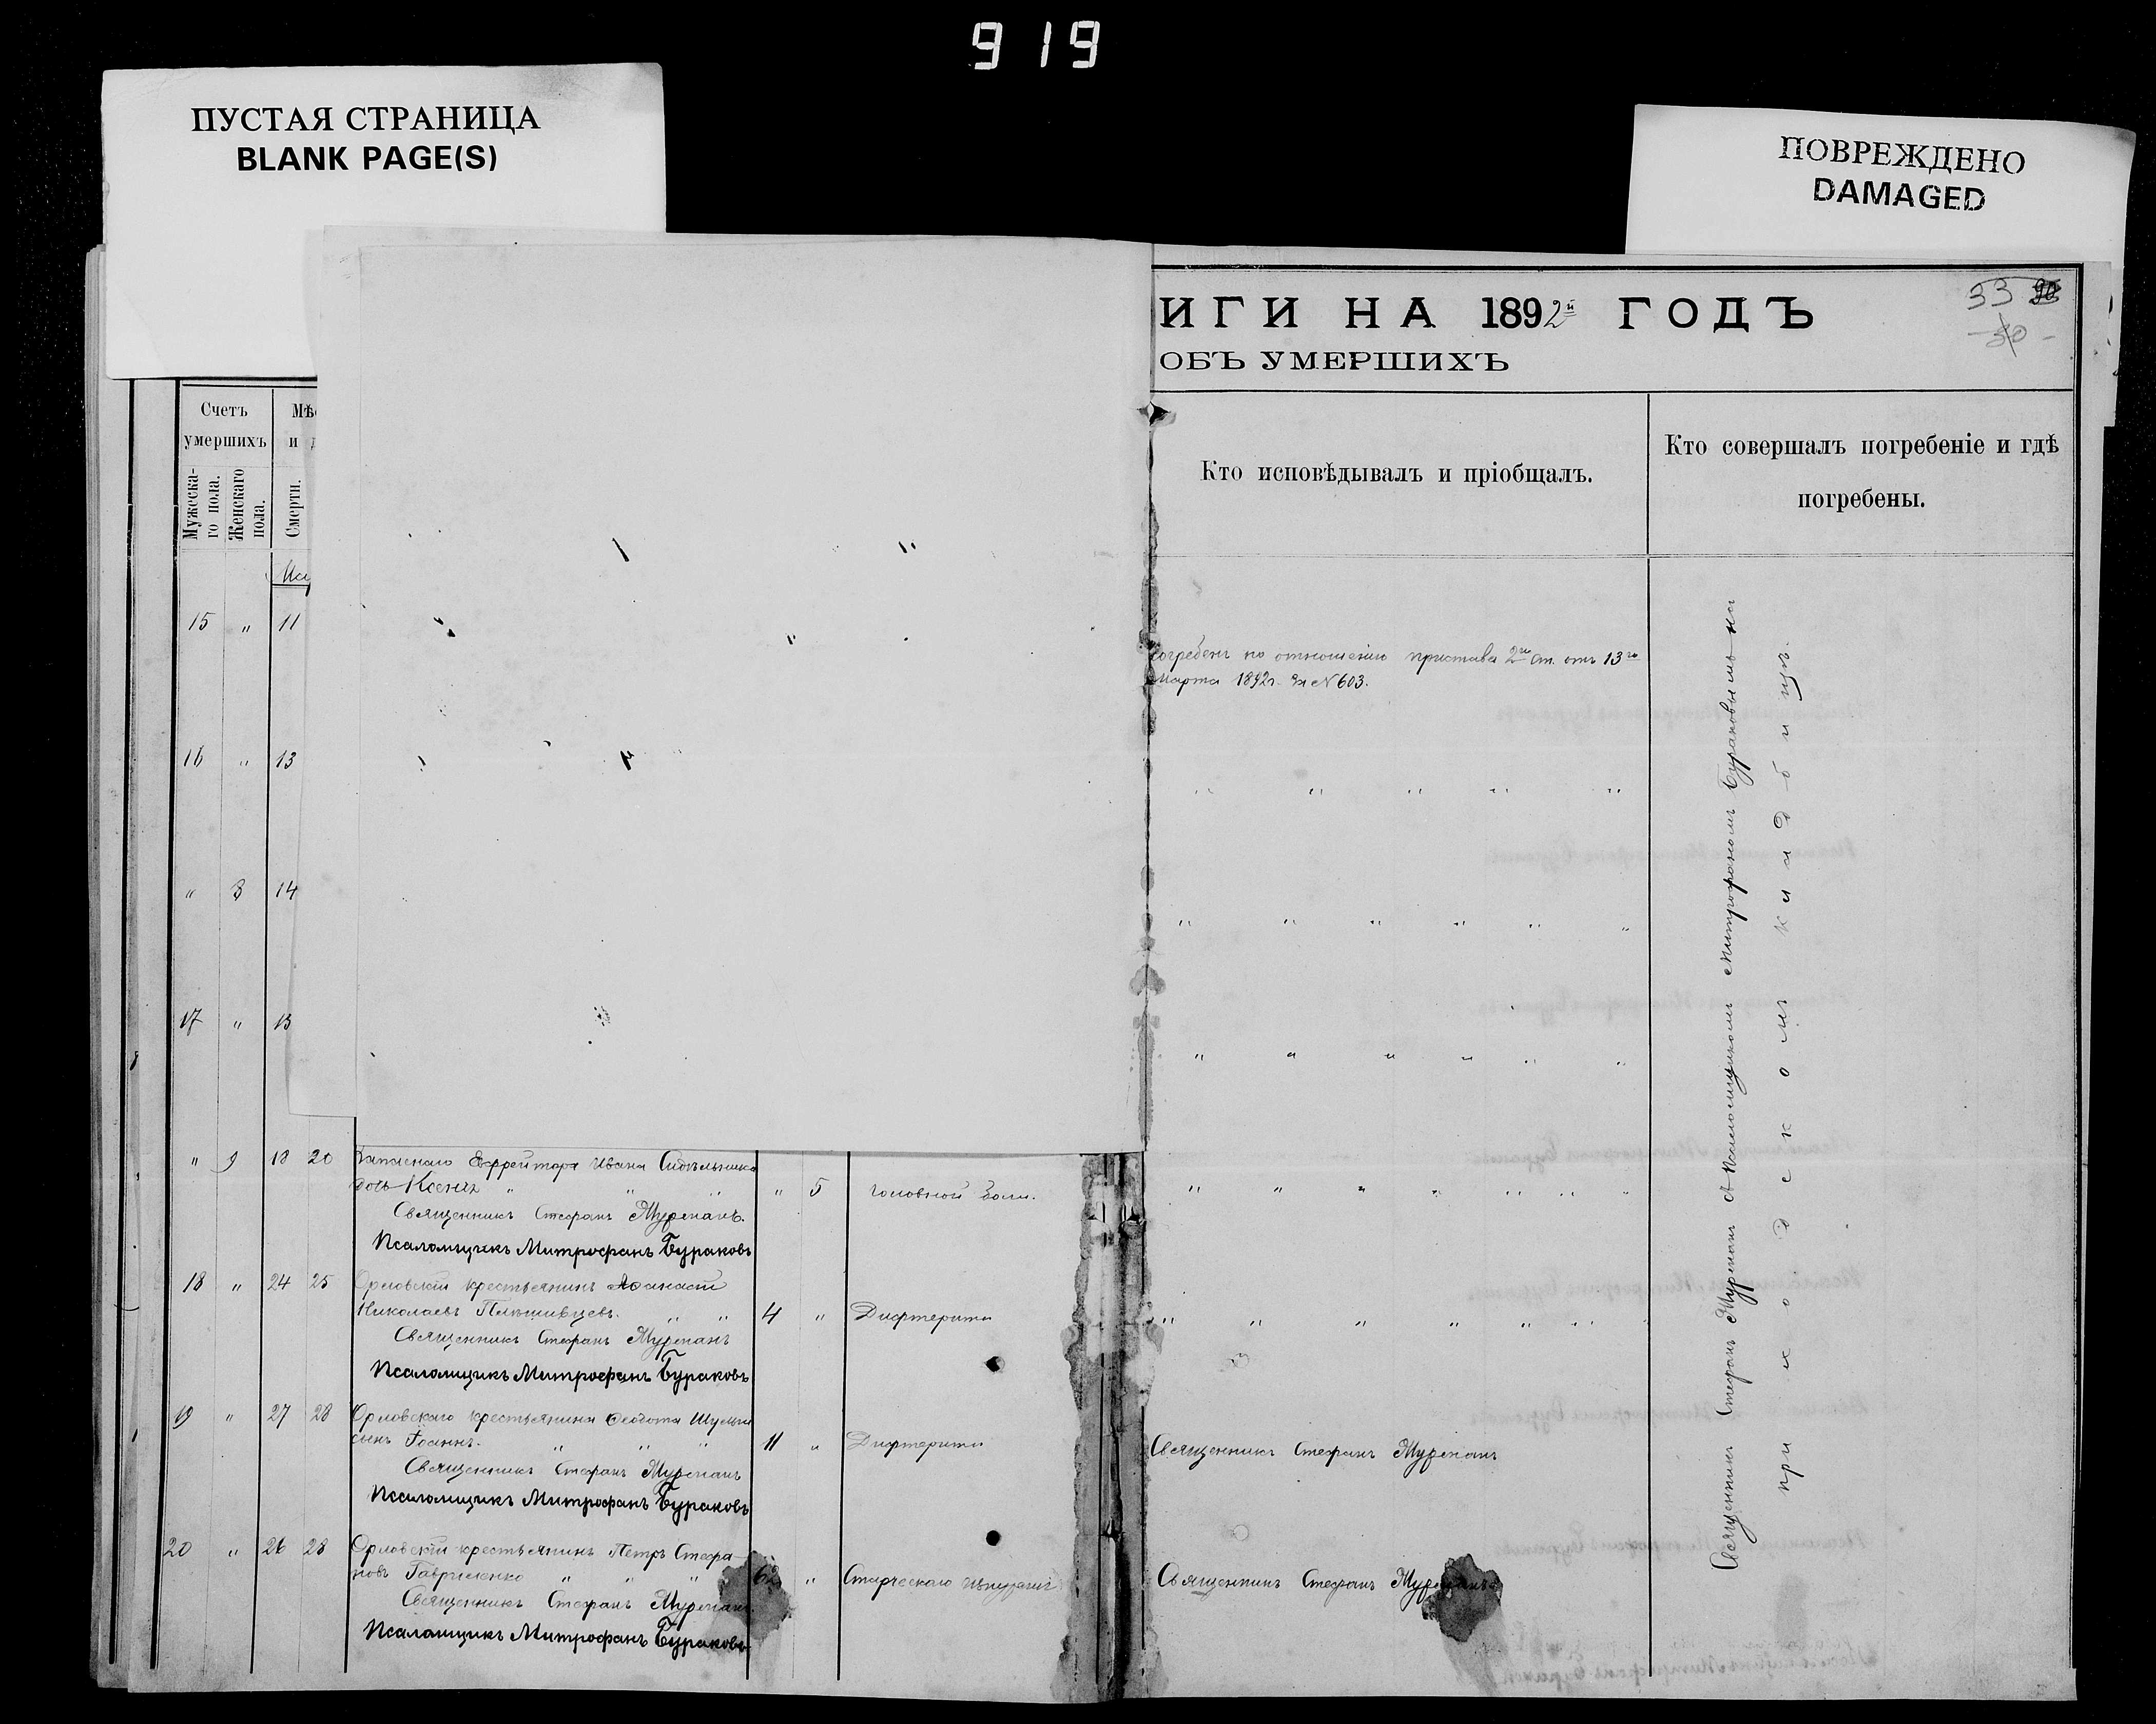 919
ПУСТАЯ СТРАНИЦА
BLANK PAGE(S)
ПОВРЕЖДЕНО
DAMAGED
ИГИ НА 1892й ГОДЪ
33 90
50
ОБЪ УМЕРШИХЪ
Счетъ
умершихъ
Мужеска-
го пола.
Женскаго
пола.
Мѣс
и д
Смерти.
Кто исповѣдывалъ и пріобщалъ.
Кто совершалъ погребеніе и гдѣ
погребены.
15 " 11
погребенъ по отношенію пристава 2го ст. отъ 13го
Марта 1892г. за №603.
16 " 13 " " " " "
" 8 14 " " " " " "
17 " 13 " " " " " "
" 9 18 20 Запаснаго Ефрейтора Ивана
дочь Ксенія " " " " 5 головной боли. " " " " " " "
Священникъ Стефанъ Мурепанъ.
Псаломщикъ Митрофанъ Бураковъ
18 " 24 25 Орловскій крестьянинъ Аѳанасій
Николаевъ Плѣшивцевъ. " " 4 " Дифтерита " " " " " "
Священникъ Стефанъ Мурепанъ
Псаломщикъ Митрофанъ Бураковъ
19 " 27 28 Орловскаго крестьянина Ѳеодота Шульги
сынъ Іоаннъ. " " " 11 " Дифтерита Священникъ Стефанъ Мурепанъ
Священникъ Стефанъ Мурепанъ
Псаломщикъ Митрофанъ Бураковъ
20 " 26 28 Орловскій крестьянинъ Петръ Стефа-
новъ Гавриленко " " " 62 " Старческаго Священникъ Стефанъ Мурепанъ
Священникъ Стефанъ Мурепанъ.
Псаломщикъ Митрофанъ Бураковъ
Священникъ Стефанъ Мурепанъ съ Псаломщикомъ Митрофаномъ Бураковымъ на
приходскомъ кладбищѣ.